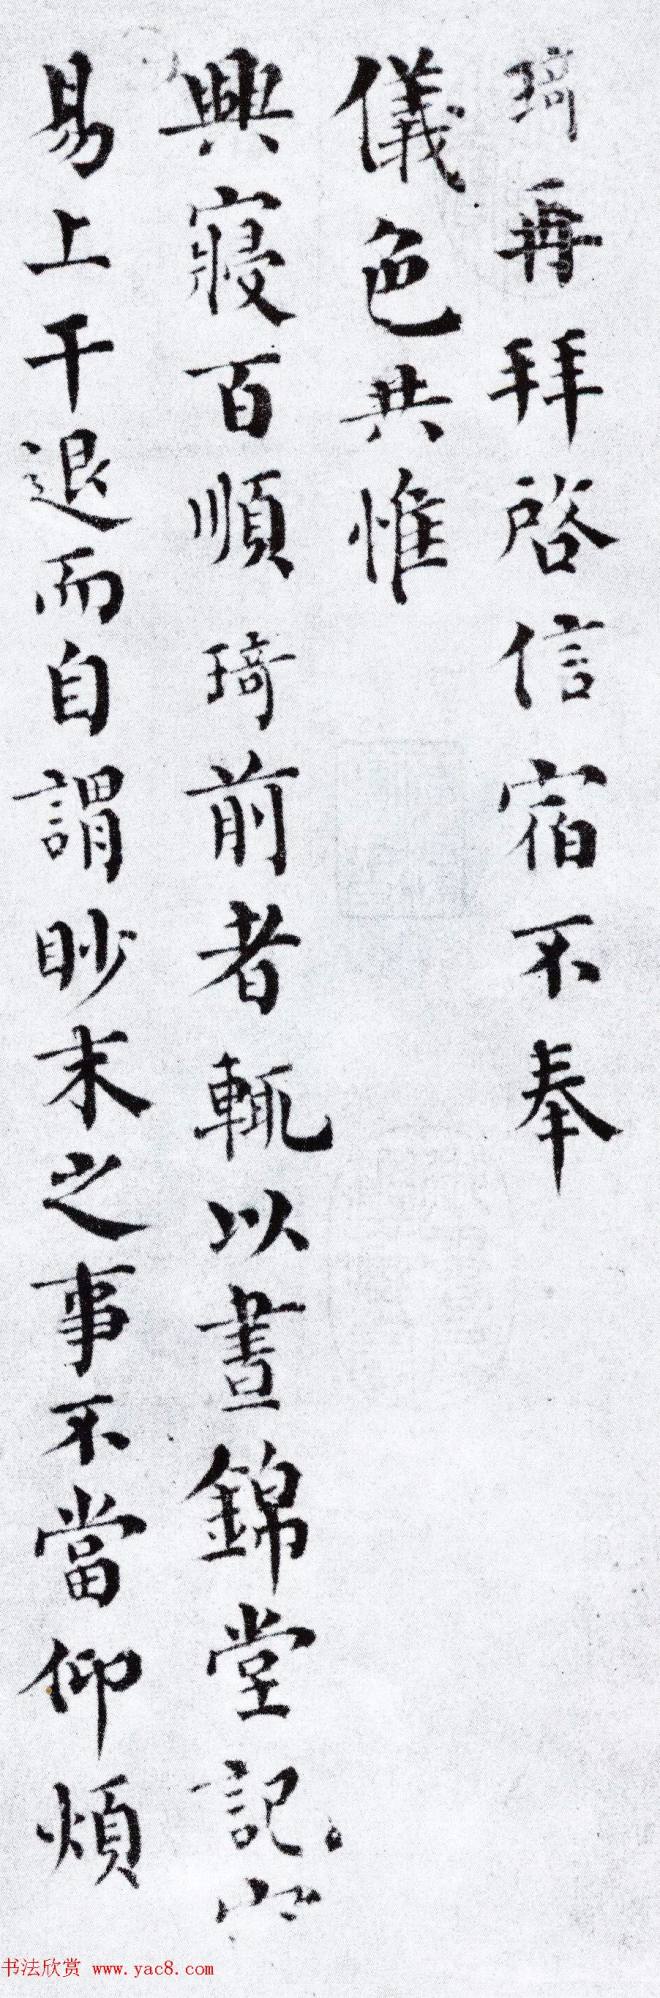 琦再拜啓信宿不奉
儀色共惟
興寢百順琦前者輒以晝錦堂記
易上干退而自謂眇末之事不當仰煩
书法欣赏 www.yac8.com